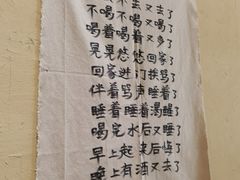 不喝不去又去了
不喝着不喝又喝了
喝着喝着又多了
晃着晃悠回家了
回家进门挨骂了
伴着骂声睡着了
睡着睡着渴醒了
喝完水后又睡了
早上起来后悔了
晚上有酒又去了